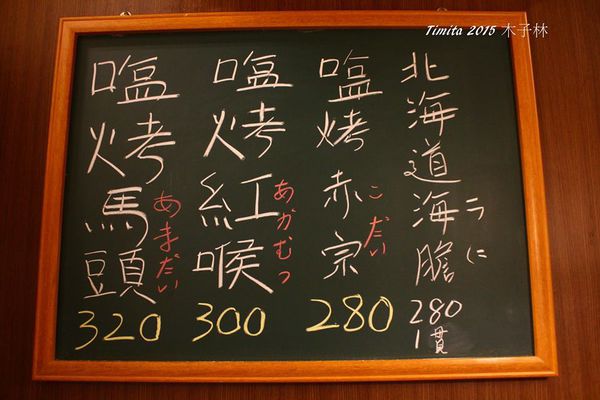 Timita 2015 木子林
北海道海膽
うに
280
1貫
塩烤赤宗
こだい
280
塩烤紅喉
あかむつ
300
塩烤馬頭
あまだい
320